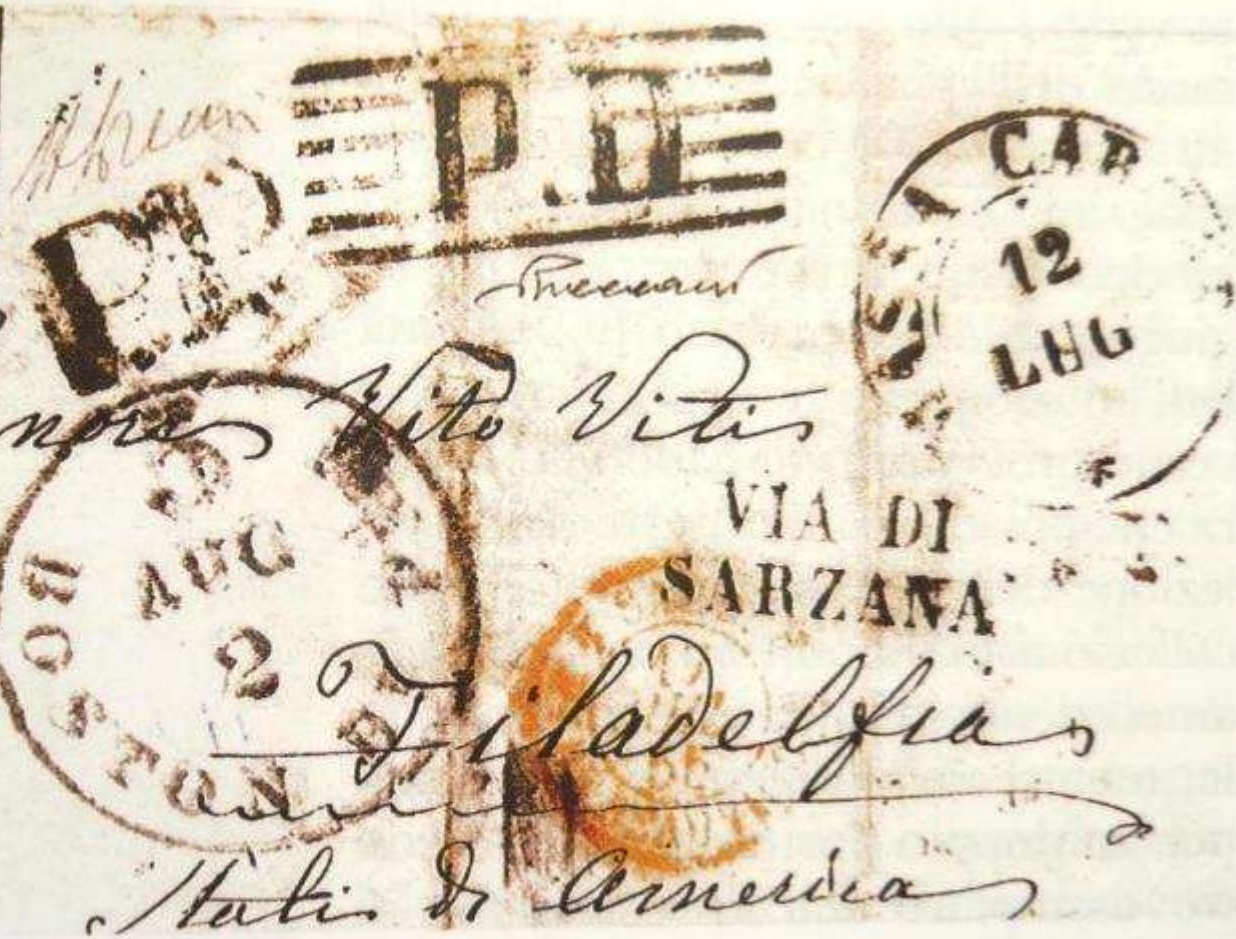 P.D
P.D
CAR
12
LUG
nore Vito Vitis
VIA DI
SARZANA
AUG
2
BOSTON
Filadelfia
Stati di America